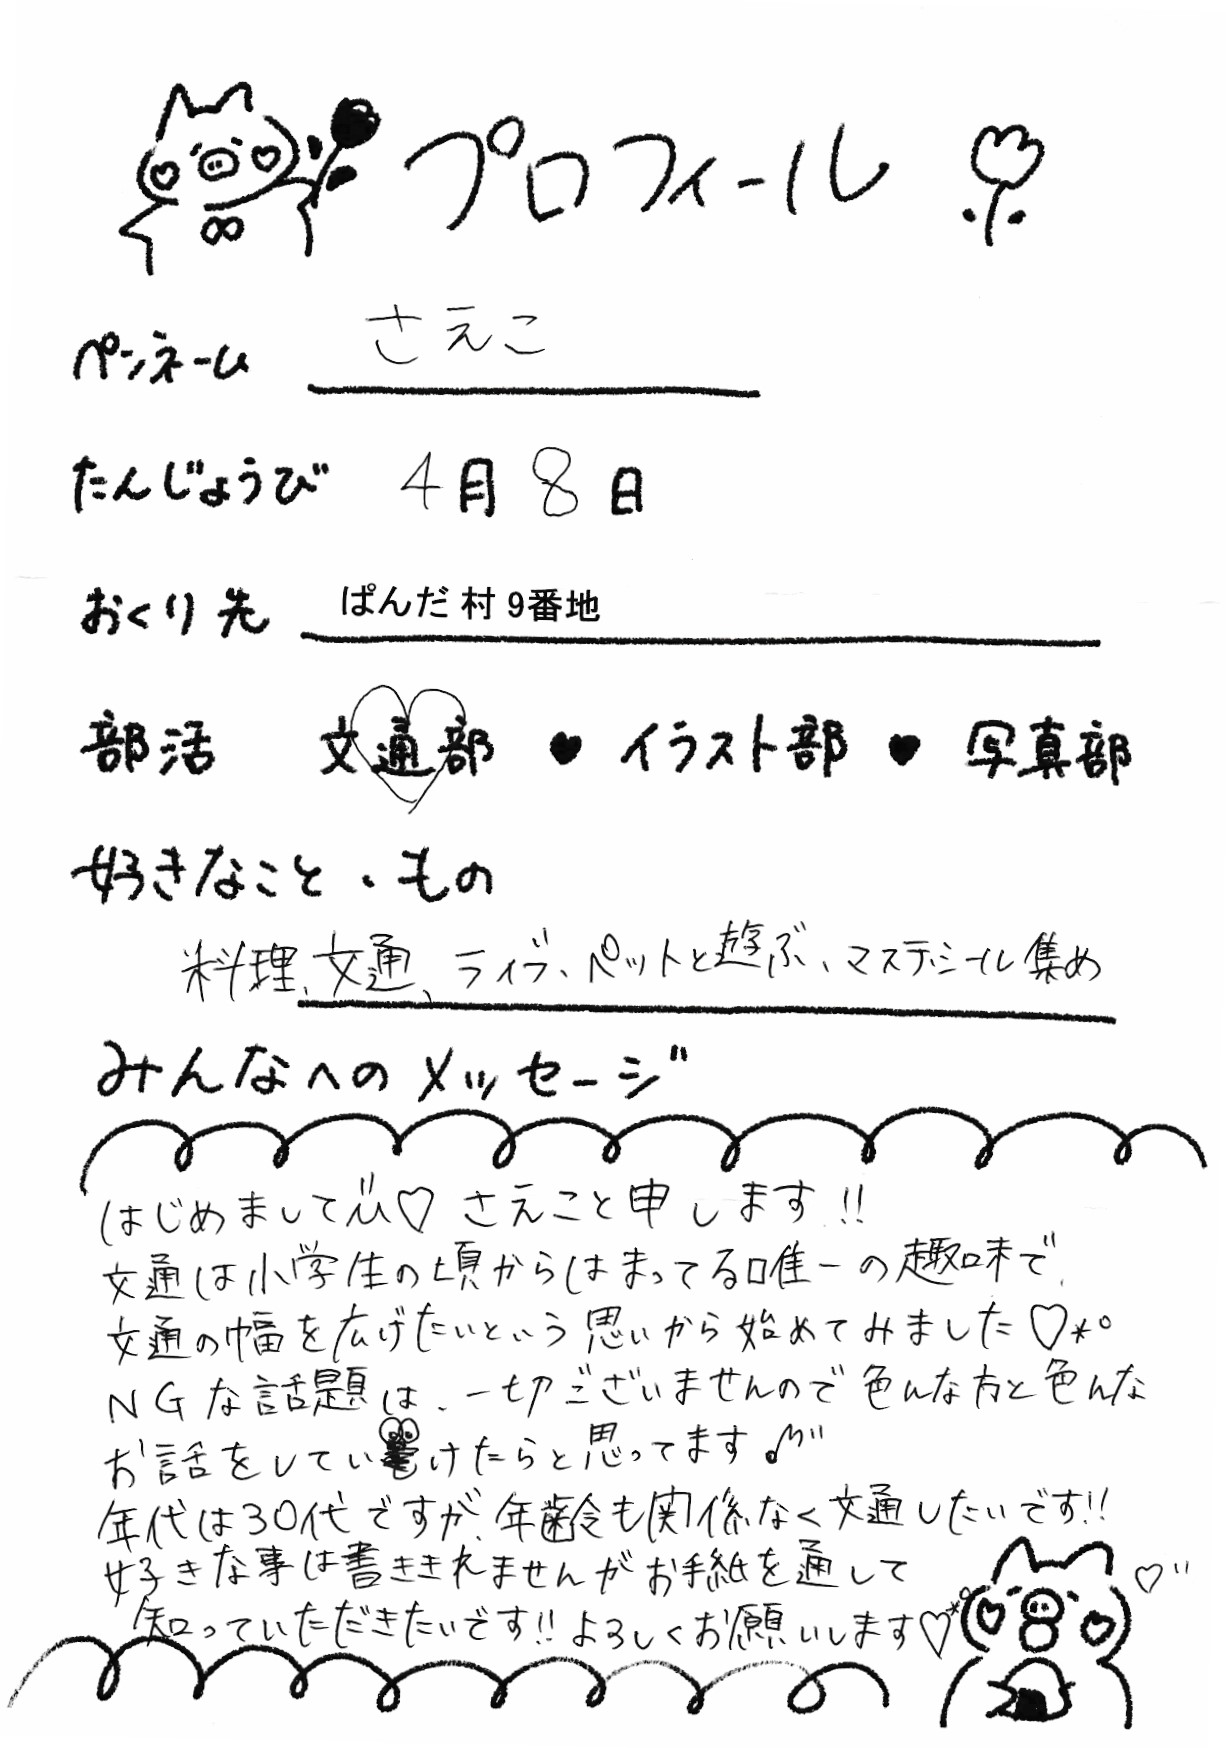 プロフィール
ペンネーム さえこ
たんじょうび 4月8日
おくり先 ぱんだ村9番地
部活 文通部 ♥ イラスト部 ♥ 写真部
好きなこと・もの
料理、文通、ライブ、ペットと遊ぶ、マステ、シール集め
みんなへのメッセージ
はじめまして♡ さえこと申します!!
文通は小学生の頃からはまってる唯一の趣味で、
文通の幅を広げたいという思いから始めてみました♡*°
NGな話題は、一切ございませんので色んな方と色んな
お話をしていけたらと思ってます♪
年代は30代ですが、年齢も関係なく文通したいです!!
好きな事は書ききれませんがお手紙を通して
知っていただきたいです!! よろしくお願いします♡*°